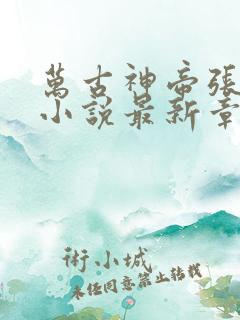 萬古神帝張
小說最新章
術小城
未經同意禁止轉載